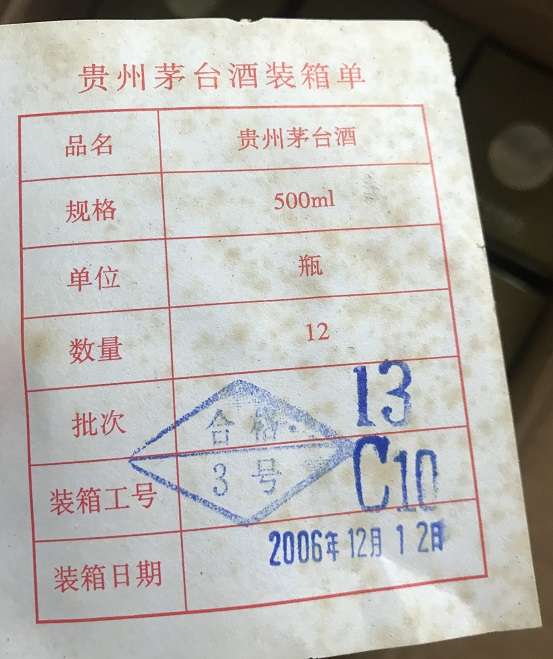 贵州茅台酒装箱单
品名 贵州茅台酒
规格 500ml
单位 瓶
数量 12
批次 13
合格
3号
装箱工号 C10
装箱日期 2006年12月12日